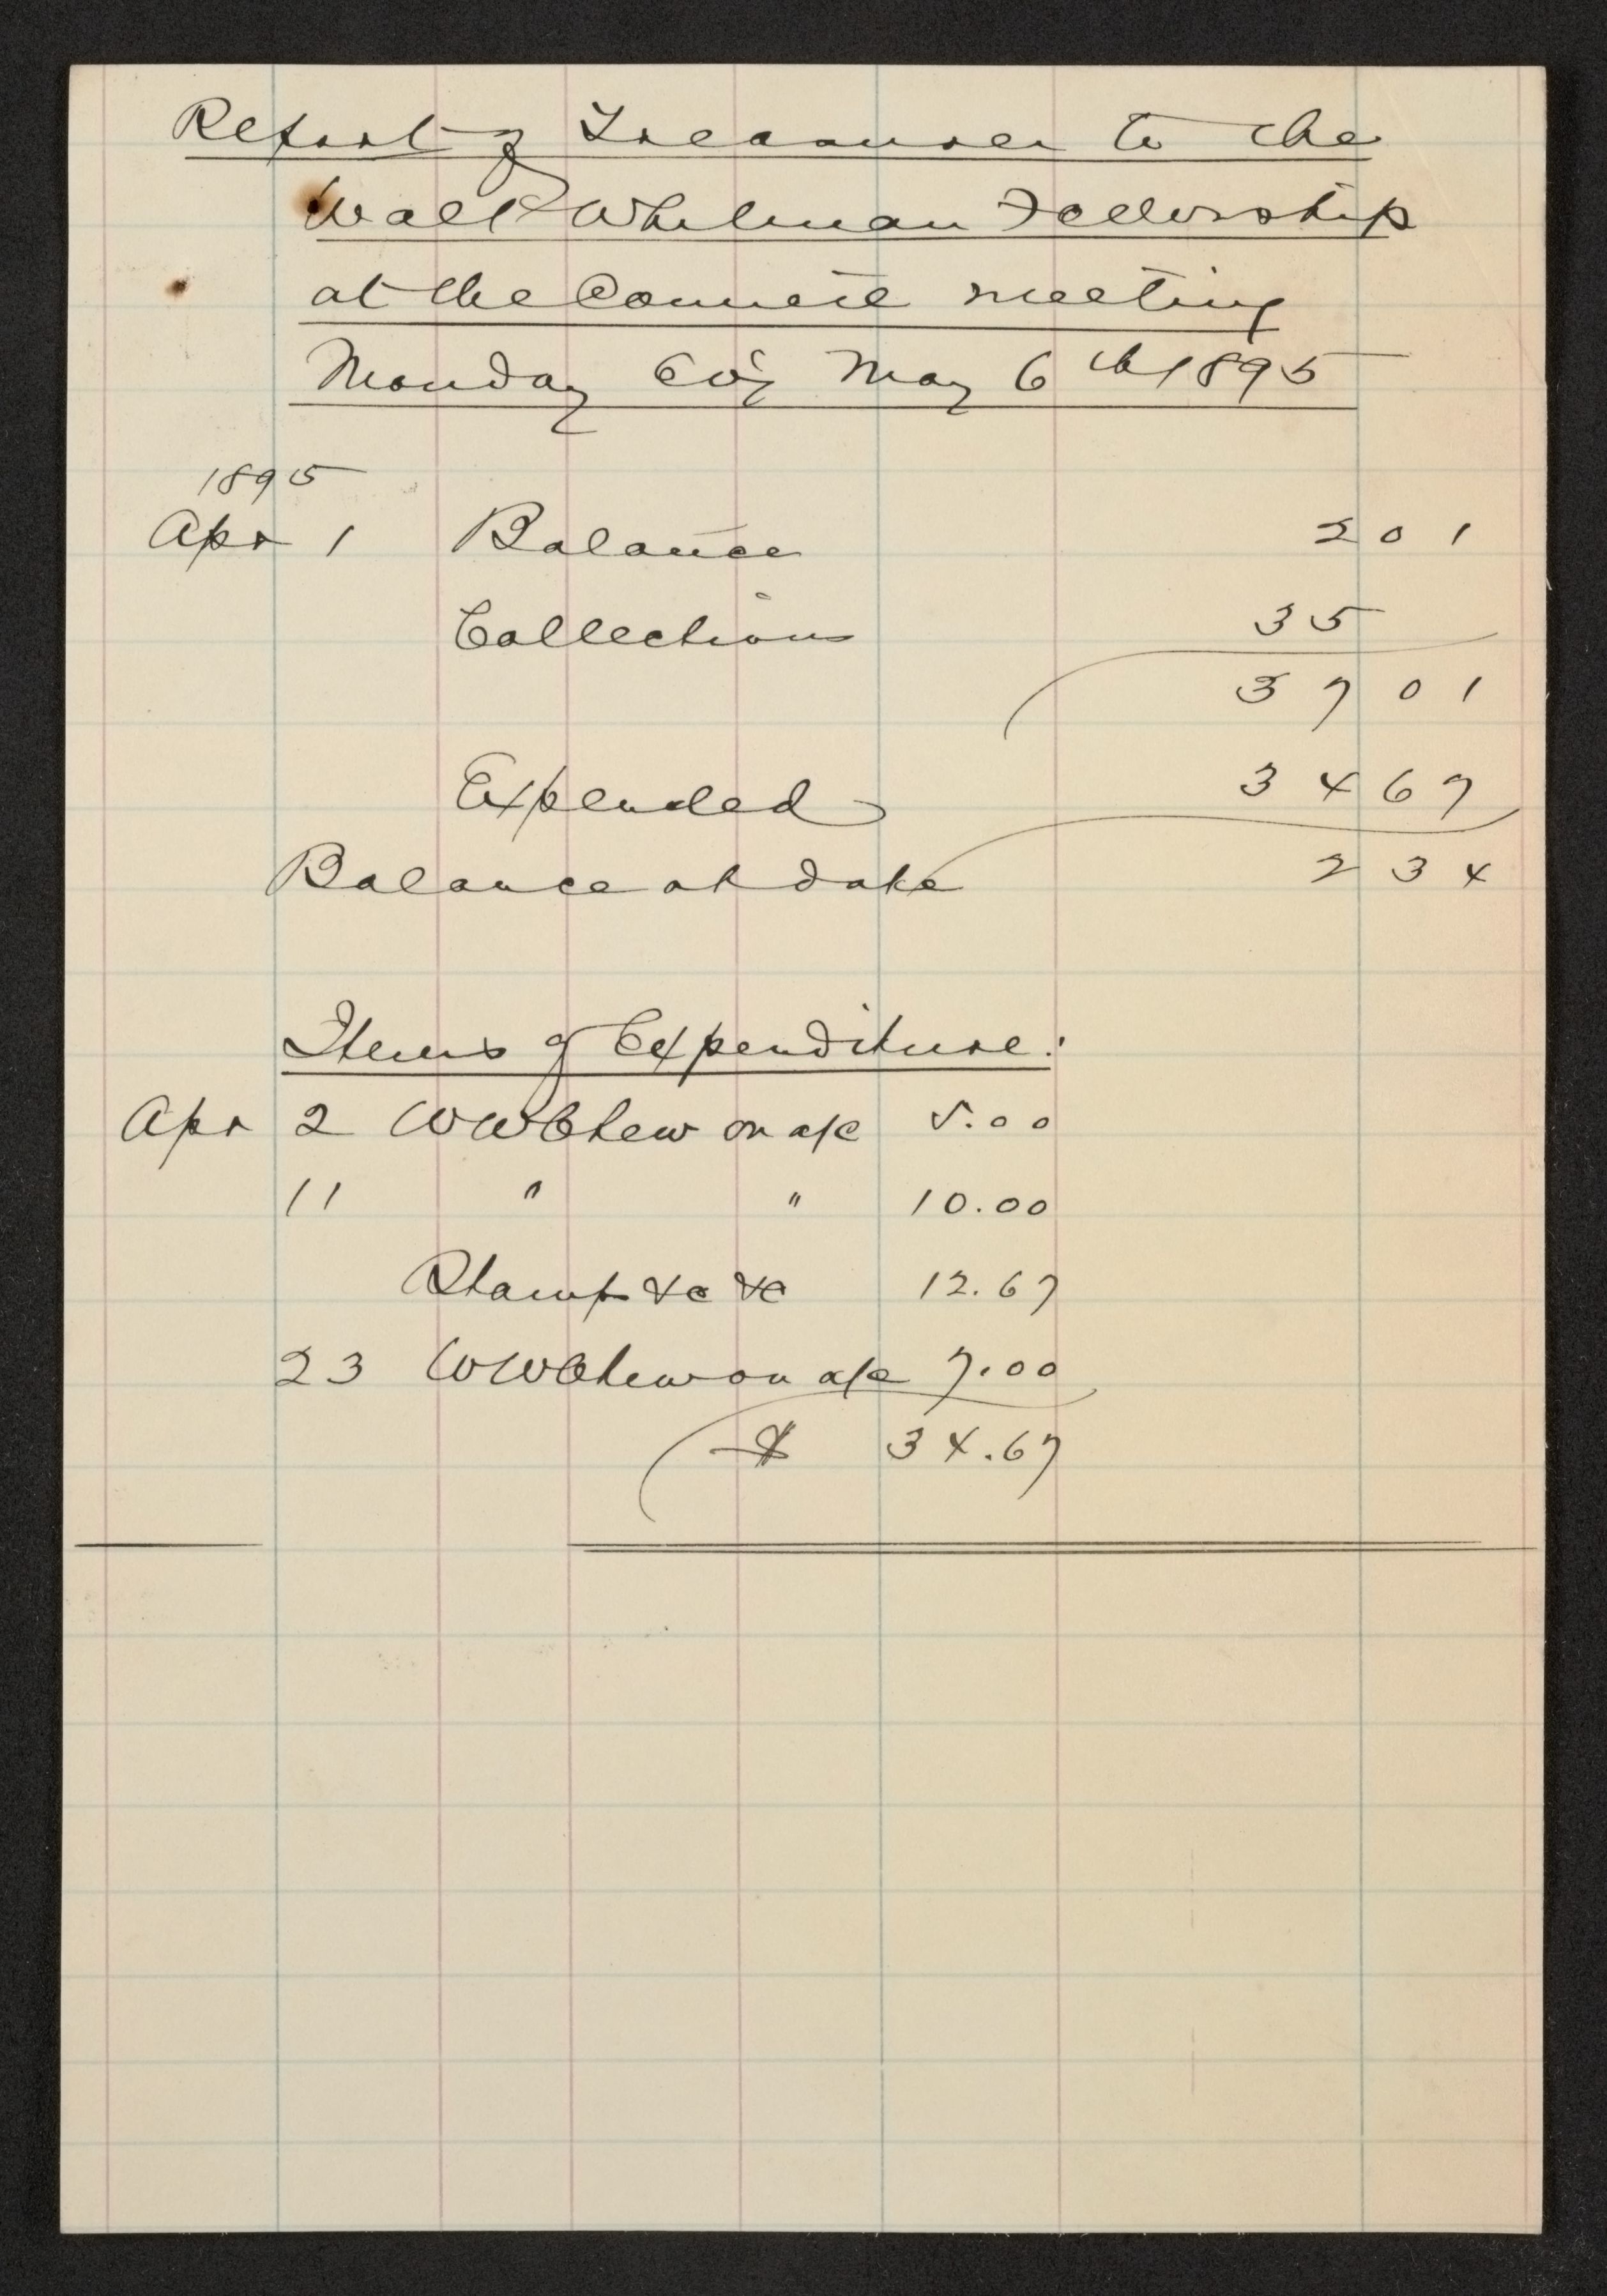 Report of Treasurer to the
Walt Whitman Fellowship
at the Council meeting
Monday Evg May 6th 1895
1895
Apr 1 Balance 2 01
Collections 35
37 01
Expended 34 67
Balance at date 2 34
Items of Expenditure:
Apr 2 WW Chew on a/c 5.00
11 " " 10.00
Stamps &c &c 12.67
23 WW Chew on a/c 7.00
$ 34.67